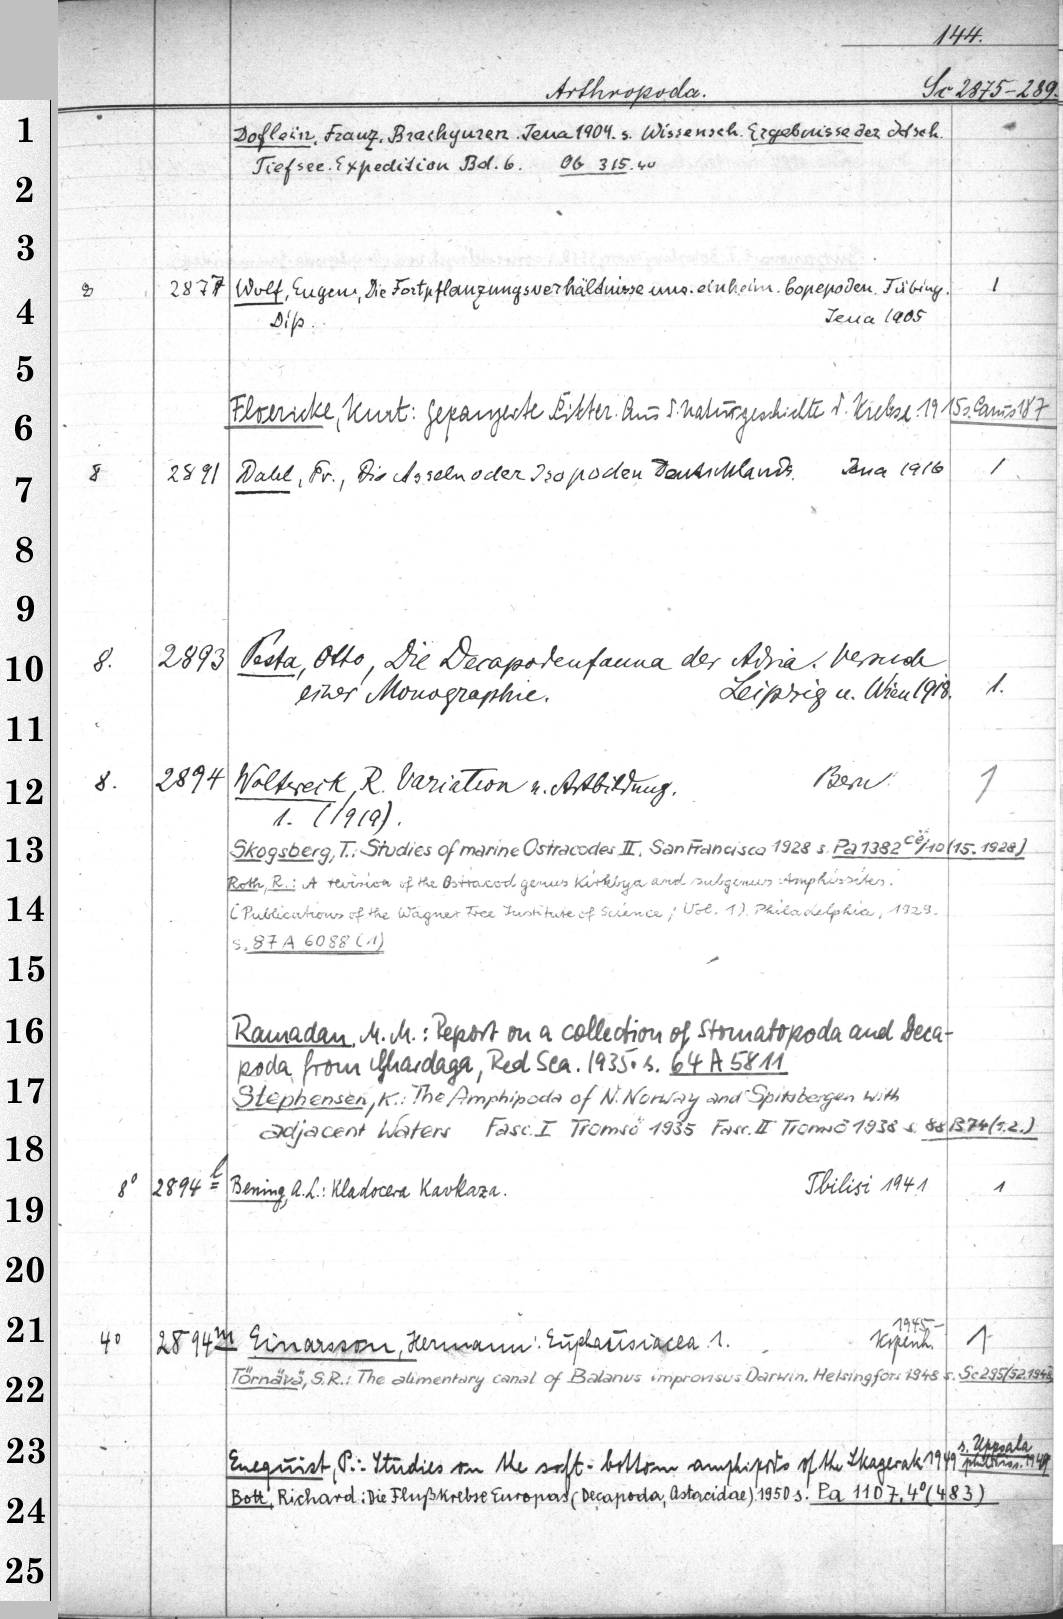 144.
Arthropoda. Sc 2875-289.
1
Doflein, Franz, Brachyuren. Jena 1904. s. Wissensch. Ergebnisse der dtsch.
2
Tiefsee-Expedition Bd. 6. Ob 315.40
3
8 2877 Wolf, Eugen, Die Fortpflanzungsverhältnisse uns. einheim. Copepoden. Tübing. 1
4
Diss. Jena 1905
5
6
Floericke, Kurt: Gepanzerte Ritter. Aus d. Naturgeschichte d. Krebse. 1915 s. Camus 187
7
8 2891 Dahl, Fr., Die Asseln oder Isopoden Deutschlands. Jena 1916 1
8
9
10
8. 2893 Pesta, Otto, Die Decapodenfauna der Adria. Versuch
einer Monographie. Leipzig u. Wien 1918. 1.
11
12
8. 2894 Woltereck, R. Variation u. Artbildung. Bern 1
1. (1919).
13
Skogsberg, T.: Studies of marine Ostracodes II. San Francisco 1928 s. Pa 1382 ce/10 (15. 1928)
Roth, R.: A revision of the Ostracod genus Kirkbya and subgenus Amphissites.
14
(Publications of the Wagner Free Institute of Science; Vol. 1). Philadelphia, 1929.
s. 87 A 6088 (1)
15
16
Ramadan, M. M.: Report on a collection of Stomatopoda and Deca-
poda from Ghardaga, Red Sea. 1935. s. 64 A 5811
17
Stephensen, K.: The Amphipoda of N. Norway and Spitsbergen with
adjacent Waters Fasc. I Tromsö 1935 Fasc. II Tromsö 1938 s. 88 B 74 (1.2.)
18
8° 2894 l Bening, A. L.: Kladocera Kavkaza. Tbilisi 1941 1
19
20
21
4° 2894 m Einarsson, Hermann: Euphausiacea 1. 1945- Kopenh. 1
22
Törnävä, S.R.: The alimentary canal of Balanus improvisus Darwin. Helsingfors 1948 s. Sc 295/52.1948
23
Enequist, P.: Studies on the soft-bottom amphipods of the Skagerak 1949 s. Uppsala phil. Diss. 1949
24
Bott, Richard: Die Flußkrebse Europas (Decapoda, Astacidae) 1950 s. Pa 1107, 4° (483)
25